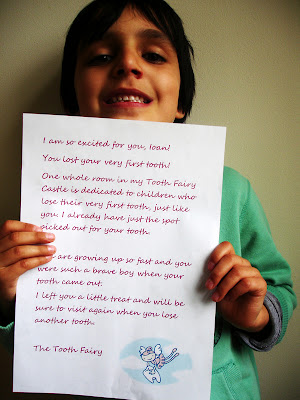 I am so excited for you, Ioan!
You lost your very first tooth!
One whole room in my Tooth Fairy
Castle is dedicated to children who
lose their very first tooth, just like
you. I already have just the spot
picked out for your tooth.
are growing up so fast and you
were such a brave boy when your
tooth came out.
I left you a little treat and will be
sure to visit again when you lose
another tooth.
The Tooth Fairy